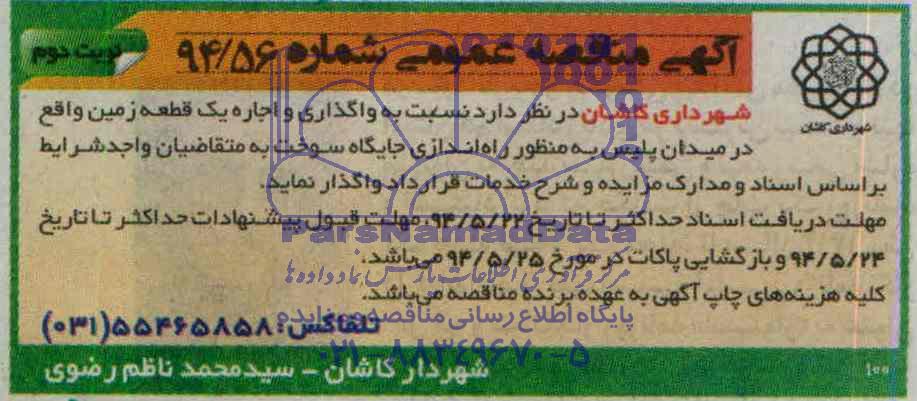 آگهی مناقصه عمومی شماره ۹۴/۵۶
نوبت دوم
شهرداری کاشان
شهرداری کاشان در نظر دارد نسبت به واگذاری و اجاره یک قطعه زمین واقع
در میدان پلیس به منظور راه اندازی جایگاه سوخت به متقاضیان واجد شرایط
بر اساس اسناد و مدارک مزایده و شرح خدمات قرارداد واگذار نماید.
مهلت دریافت اسناد حداکثر تا تاریخ ۹۴/۵/۲۲، مهلت قبول پیشنهادات حداکثر تا تاریخ
۹۴/۵/۲۴ و بازگشایی پاکات در مورخ ۹۴/۵/۲۵ می‌باشد.
کلیه هزینه‌های چاپ آگهی به عهده برنده مناقصه می‌باشد.
تلفاکس: ۵۵۴۶۵۸۵۸(۰۳۱)
شهردار کاشان - سیدمحمد ناظم رضوی
۱۰۰
ParsNamadData
مرکز فرآوری اطلاعات پارس نماد داده‌ها
پایگاه اطلاع رسانی مناقصه و مزایده
۰۲۱-۸۸۳۴۹۶۷۰-۵